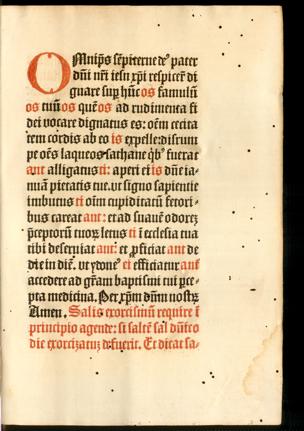 OMnip̃s sẽpiterne de⁹ pater
dñi nr̃i iesu xp̃i respicer̃ di
gnare sup̱ hũc os famulũ
os tuũ os quẽ os ad rudimenta fi
dei vocare dignatus es: oẽm cecita
tem cordis ab eo is expelle: disrum
pe oẽs laqueos sathane q̃b⁹ fuerat
ant alligatus ti: aperi ei is dñe ia-
nuã pietatis tue. ut signo sapientie
imbutus ti oĩm cupiditatũ fetori-
bus careat ant: et ad suauẽ odorẽ
p̃ceptorũ tuoꝝ letus ti ĩ ecclesia tua
tibi deseruiat ant: et ꝓficiat ant de
die in diẽ. ut ydone⁹ ei efficiatur ant
accedere ad gr̃am baptismi tui p̱ce-
pta medicina. Per xp̃m dñm nostꝝ
Amen. Salis exorcismũ require ĩ
principio agende: si saltẽ sal dñico
die exorcizatuꝫ defuerit. Et dicat sa-